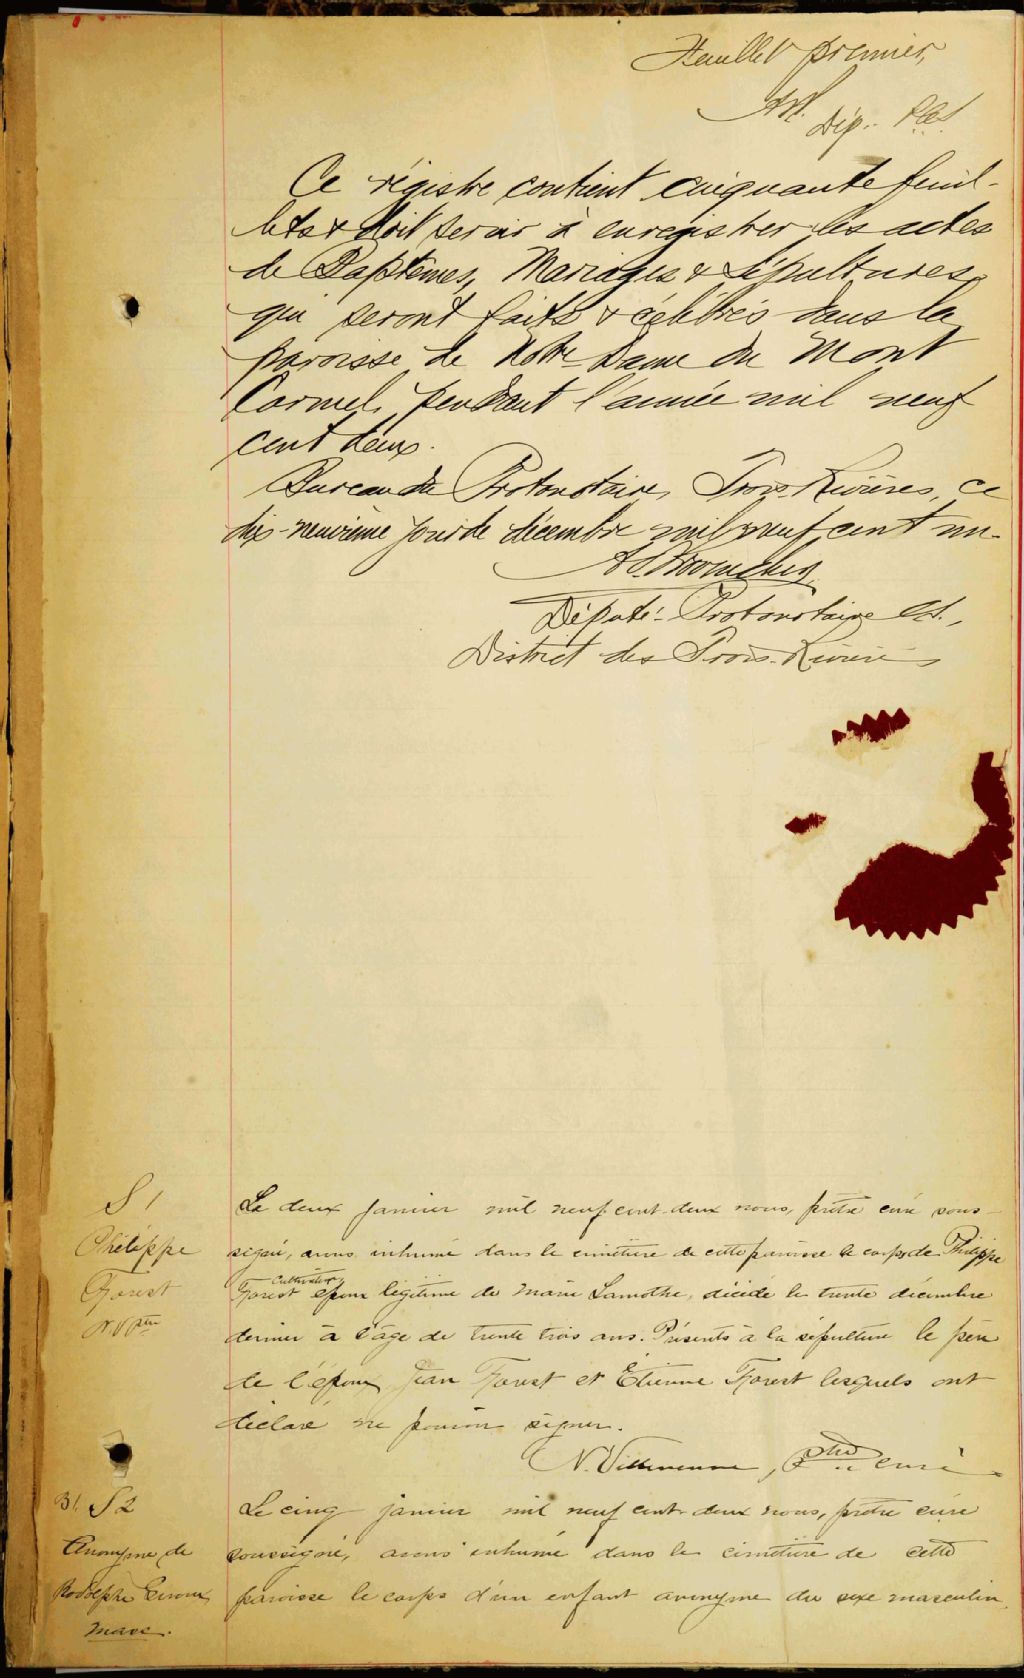 Feuillet premier,
Dép.
Ce régistre contient cinquante feuil-
lets & doit servir à enregistrer les actes
de Baptêmes, Mariages & Sépultures
qui seront faits & célébrés dans la
paroisse de Notre-Dame du Mont
Carmel, pendant l'année mil neuf
cent deux.
Bureau du Protonotaire, Trois-Rivières, ce
dix-neuvième jour de décembre mil neuf cent un.
Député-Protonotaire
District des Trois-Rivières
S 1
Philippe
Forest
Le deux janvier mil neuf cent-deux nous, prêtre curé sous-
signé, avons inhumé dans le cimetière de cette paroisse le corps de Philippe
Cultivateur
Forest époux légitime de Marie Lamothe, décédé le trente décembre
dernier à l'âge de trente trois ans. Présents à la sépulture le père
de l'époux Jean Forest et Étienne Forest lesquels ont
déclaré ne pouvoir signer.
N. Villeneuve, Ptre curé
B1. S2
Anonyme de
Rodolphe
masc.
Le cinq janvier mil neuf cent-deux nous, prêtre curé
soussigné, avons inhumé dans le cimetière de cette
paroisse le corps d'un enfant anonyme du sexe masculin